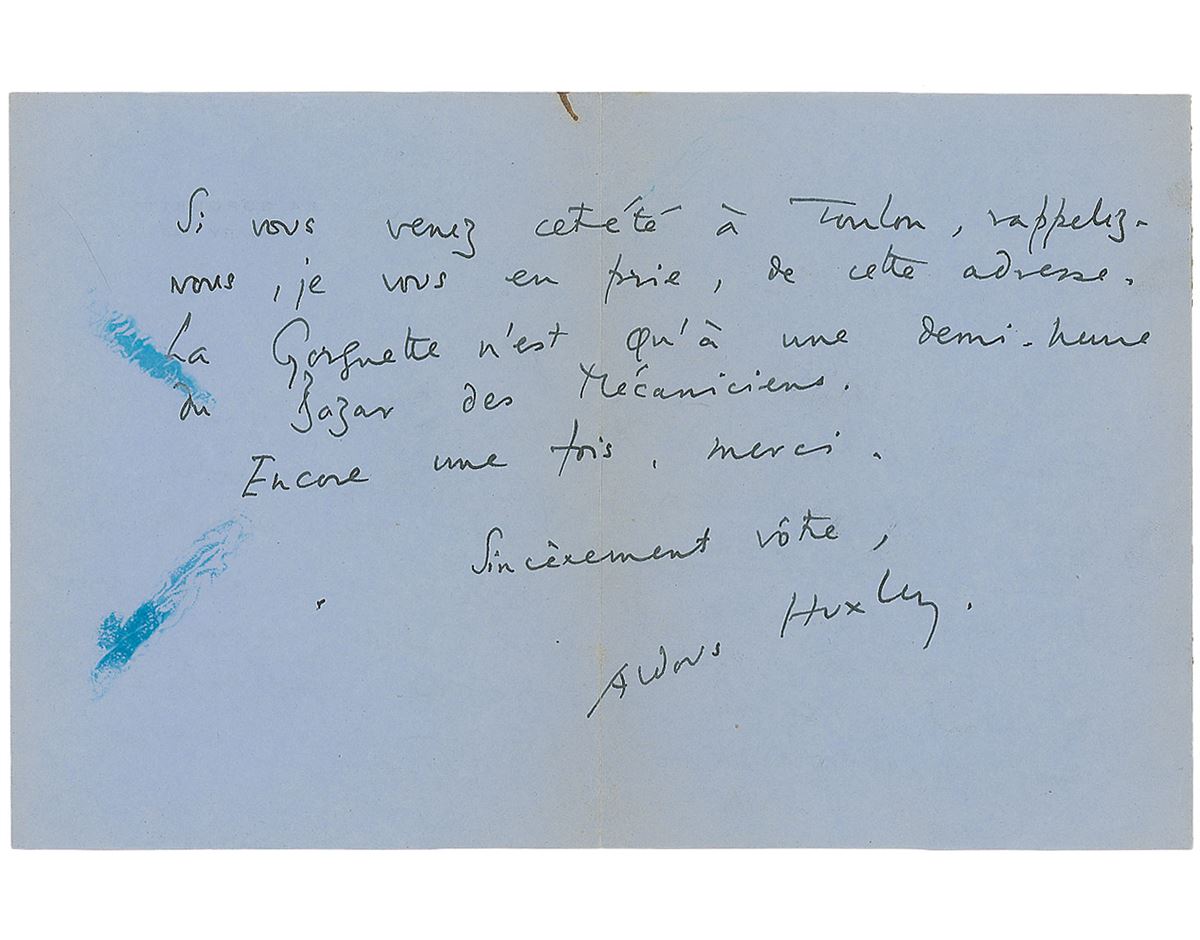 Si vous venez cet été à Toulon, rappelez-
vous, je vous en prie, de cette adresse.
La Gorguette n'est qu'à une demi-heure
du Bazar des Mécaniciens.
Encore une fois, merci.
Sincèrement vôtre,
Aldous Huxley.